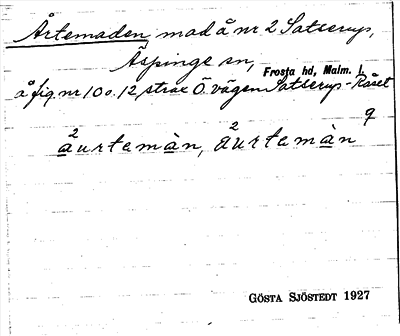 Årtemaden mad å nr 2 Satserup,
Äspinge sn, Frosta hd, Malm. l.
å fig. nr 10 o. 12, strax Ö. vägen Satserup-Råset
2aurtemàn, 2aurtemàn 9
GÖSTA SJÖSTEDT 1927